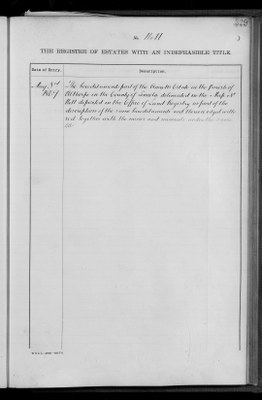 No.
THE REGISTER OF ESTATES WITH AN INDEFEASIBLE TITLE.
Date of Entry.
Description.
May 3rd
The hereditaments part of the Estate in the Parish of
Althorpe in the County of Lincoln delineated on the Map No
deposited in the Office of Land Registry as part of the
description of the same hereditaments and thereon edged with
red together with the mines and minerals under the same